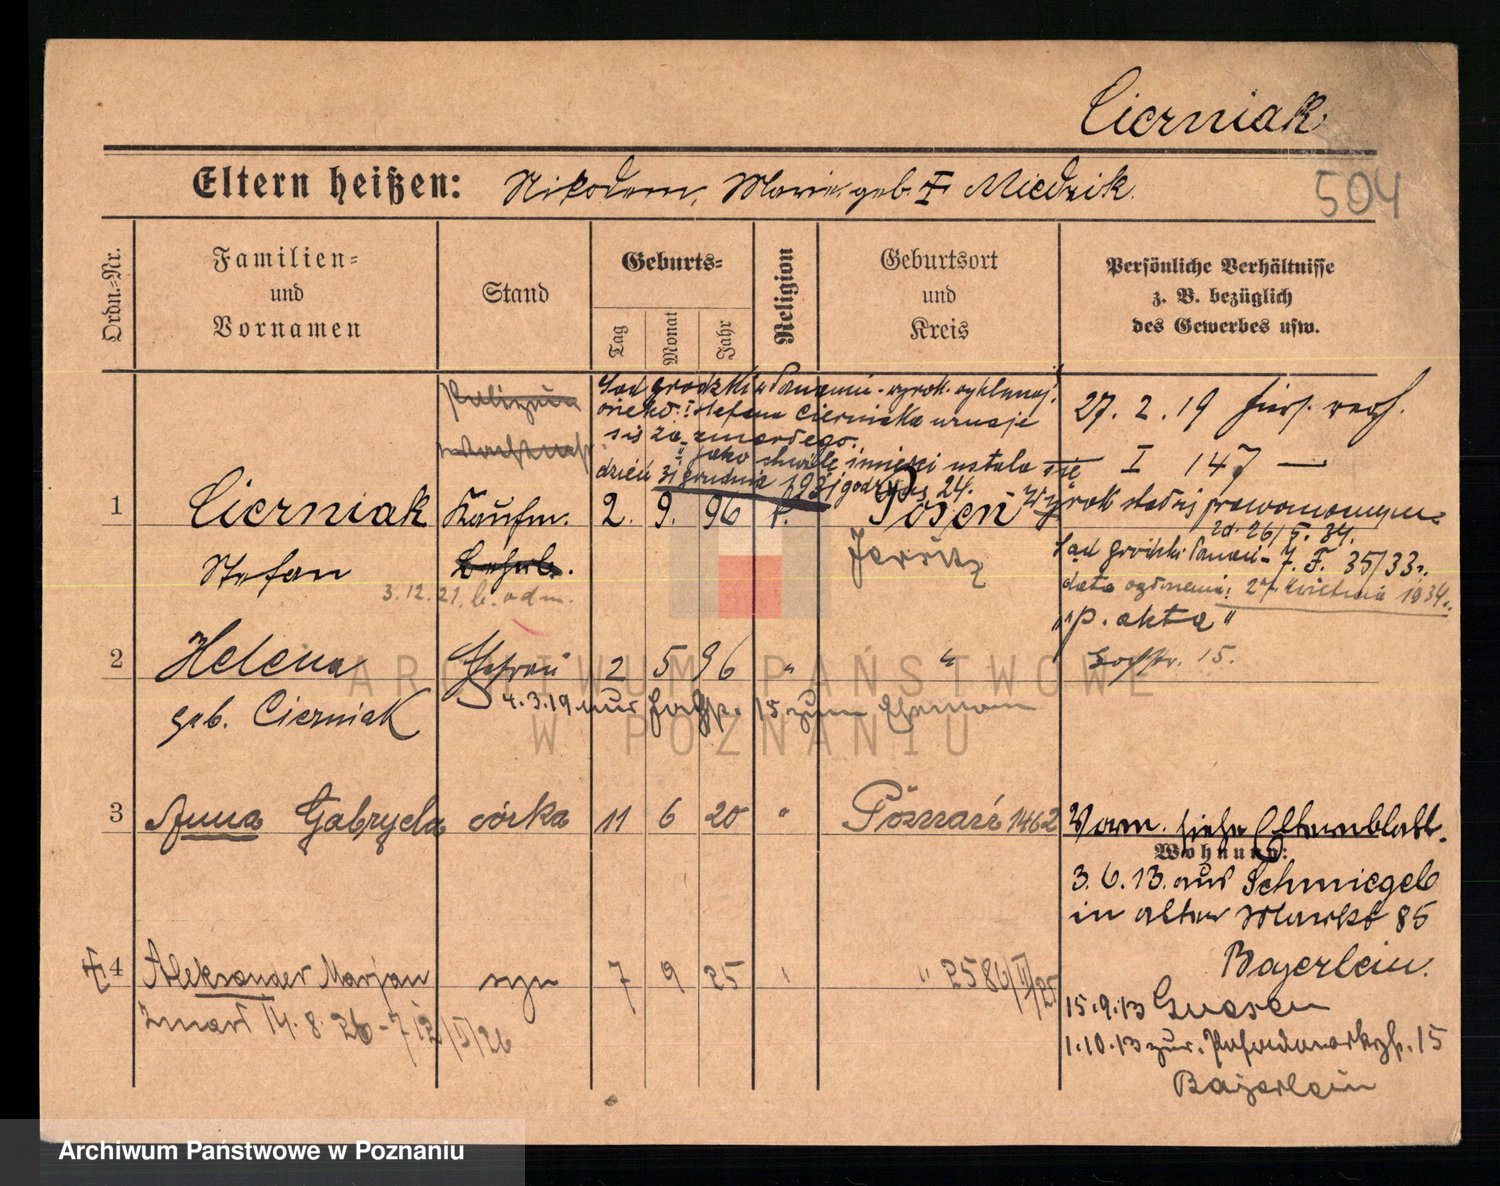 Cierniak
Eltern heißen: Nikodem, Marie geb. Miedzik
504
Ordn.-Nr.
Familien-
und
Vornamen
Stand
Geburts-
Tag
Monat
Jahr
Religion
Geburtsort
und
Kreis
Persönliche Verhältnisse
z. B. bezüglich
des Gewerbes usw.
Sąd grodzki w Poznaniu - wyrok
Stefana Cierniaka uznaje
się za zmarłego.
jako chwilę śmierci ustala się
dzień 31 grudnia 1921 godz. 24.
27. 2. 19
I 147 —
1 Cierniak Kaufm. 2. 9. 96 k. Posen
Wyrok stał się prawomocnym
26/5. 34.
Stefan Jersitz
Sąd Grodzki Poznań - 7. F. 35/33.
3.12.21.
data 27 kwietnia 1934.
"p. akta"
2 Helena Ehefrau 2 5 96 " "
15.
geb. Cierniak
4.3.19 15 zum Ehemann
3 Anna Gabryela córka 11 6 20 " Poznań 1462
Vorm. siehe Elternblatt.
Wohnung:
3. 6. 13. aus Schmiegel
in alter Markt 85
Bayerlein.
4 Aleksander Marjan syn 7 9 25 " " 2586/II/25
Zmarł 14. 8. 26
15.9.13 Gnesen
1.10.13 zur. 15
Bayerlein
ARCHIWUM PAŃSTWOWE
W POZNANIU
Archiwum Państwowe w Poznaniu